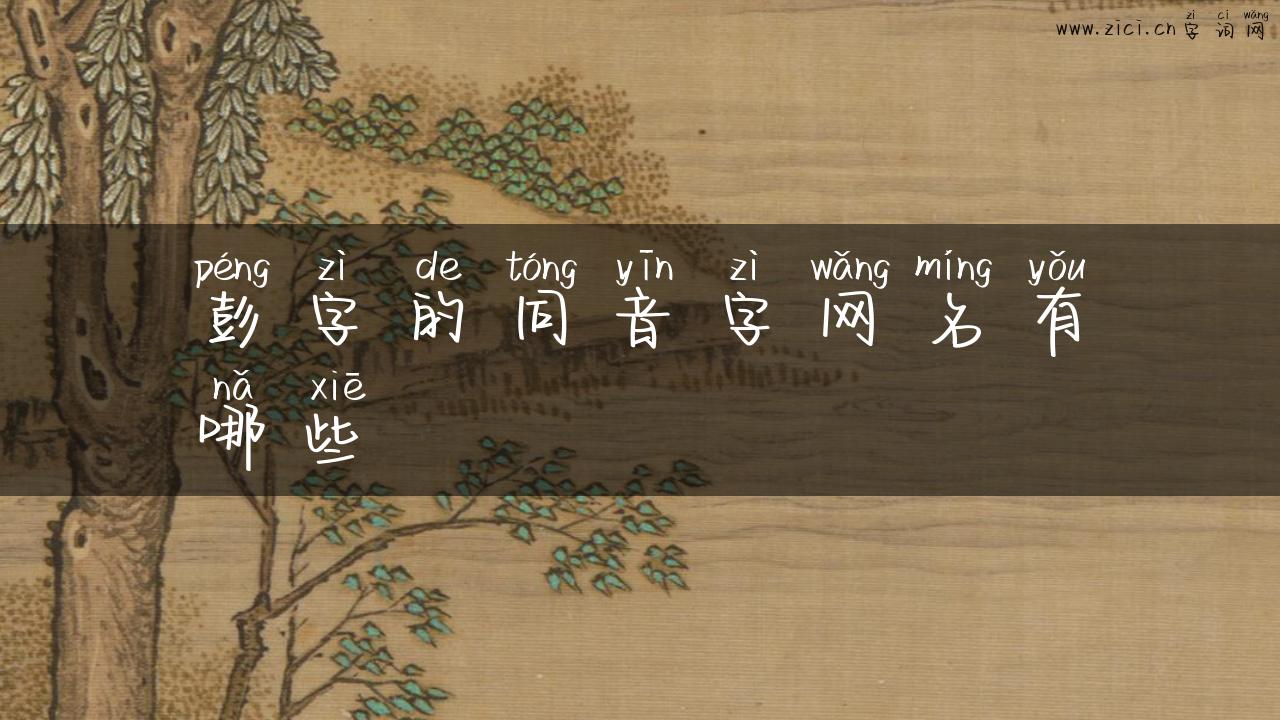 zì cí wǎng
www.zici.cn 字词网
péng zì de tóng yīn zì wǎng míng yǒu
彭字的同音字网名有
nǎ xiē
哪些